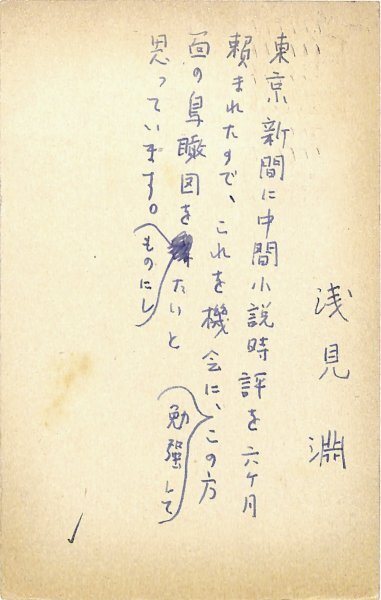 浅見 淵
東京新聞に中間小説時評を六ケ月
頼まれたので、これを機会に、この方
勉強して
面の鳥瞰図を たいと
ものにし
思っています。